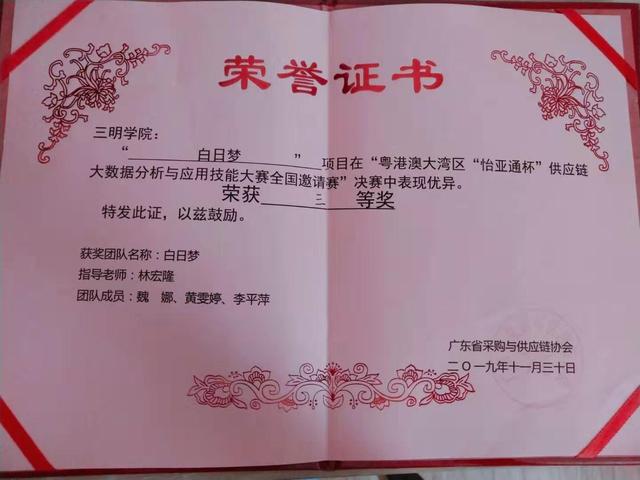 荣誉证书
三明学院：
“白日梦”项目在“粤港澳大湾区“怡亚通杯”供应链
大数据分析与应用技能大赛全国邀请赛”决赛中表现优异。
荣获三等奖
特发此证，以兹鼓励。
获奖团队名称：白日梦
指导老师：林宏隆
团队成员：魏 娜、黄雯婷、李平萍
广东省采购与供应链协会
二〇一九年十一月三十日